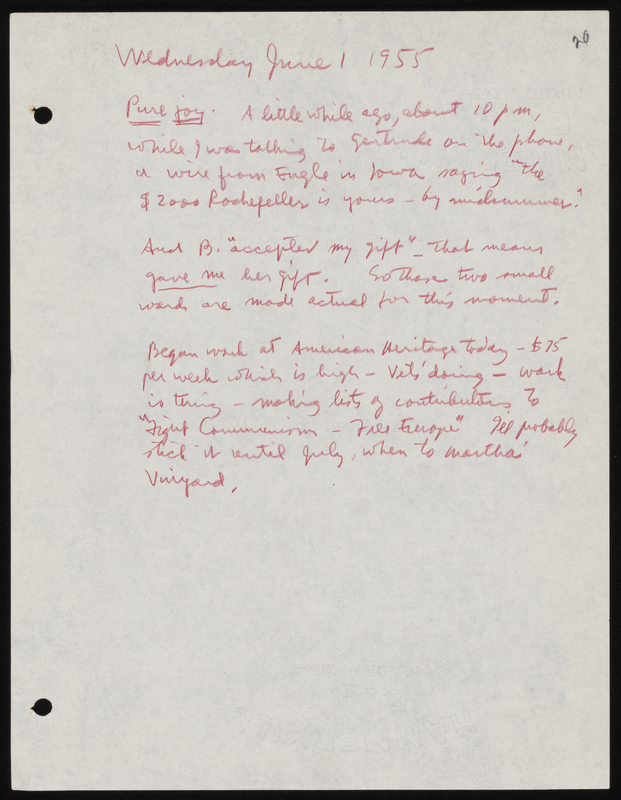 20
Wednesday June 1 1955
Pure joy. A little while ago, about 10 pm,
while I was talking to Gertrude on the phone,
a wire from Engle in Iowa saying "the
$2000 Rockefeller is yours - by midsummer."
And B. "accepted my gift" - that means
gave me her gift. So those two small
words are made actual for this moment.
Began work at American Heritage today - $75
per week which is high - Vets' doing - work
is - making lists of contributors to
"Fight Communism - Free Europe" I'll probably
stick it until July, when to Martha's
Vinyard.